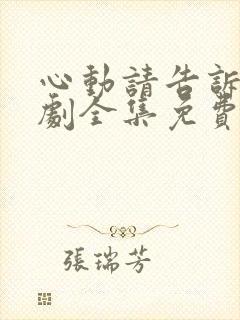 心動請告訴
劇全集免費
張瑞芳